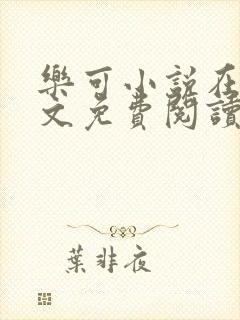 樂可小說在
文免費閱讀
葉非夜